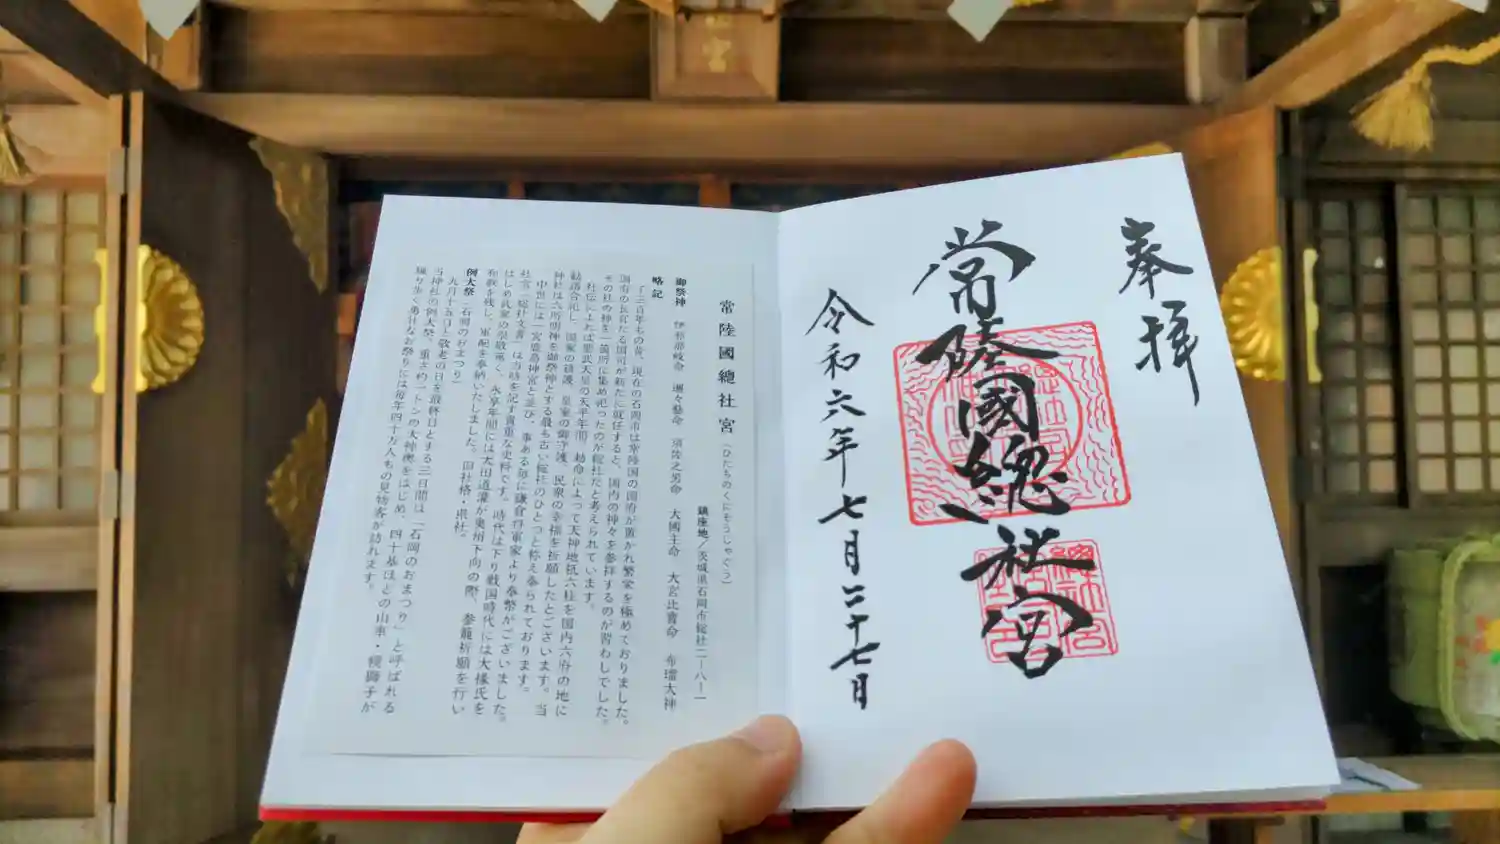 奉拝
常陸國總社宮
令和六年七月二十七日
常陸國總社宮(ひたちのくにそうしゃぐう)
鎮座地/茨城県石岡市総社二-八-一
御祭神 伊弉諾尊 瓊々藝命 須佐之男命 大國主命 大宮比賣命 布瑠大神
略記
千三百年もの昔、現在の石岡市は常陸国の国府が置かれ繁栄を極めておりました。
国府の長官たる国司が新たに就任すると、国内の神々を参拝するのが習わしでした。
その社の神を一箇所に集め祀ったのが総社だと考えられています。
社伝によれば聖武天皇の天平年間、勅命によって天神地祇六柱を国内六府の地に
神社は六所明神を御祭神とする最も古い総社のひとつと称え奉られております。
中世には一宮鹿島神宮と並び、事ある毎に鎌倉将軍家より奉幣がございました。
社宮「総社文書」は当時を記す貴重な史料です。時代は下り戦国時代には大掾氏を
はじめ武家の崇敬篤く、永享年間には太田道灌が奥州下向の際、参籠祈願を行い
和歌を残し、軍配を奉納いたしました。旧社格・県社。
例大祭(石岡のおまつり)
九月十五日、敬老の日を最終日とする三日間は「石岡のおまつり」と呼ばれる
当神社の例大祭。重さ約一トンの大神輿をはじめ、四十基ほどの山車・幌獅子が
練り歩く勇壮なお祭りには毎年四十万人もの見物客が訪れます。
宮